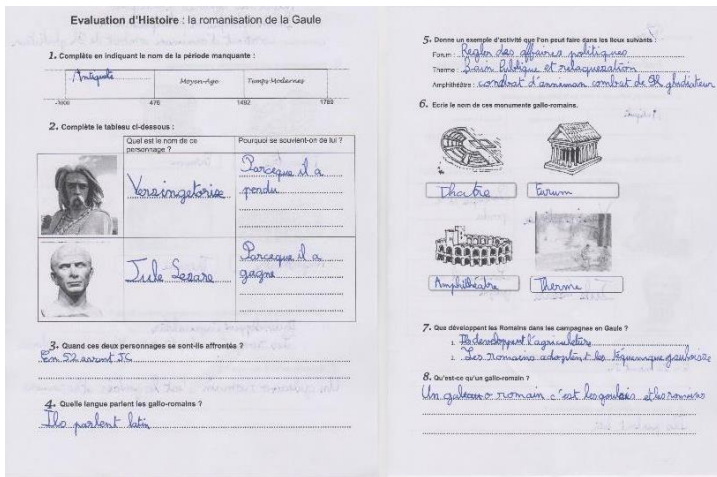 Evaluation d'Histoire : la romanisation de la Gaule
1. Complète en indiquant le nom de la période manquante :
Antiquité
Moyen-Age
Temps-Modernes
476
1492
1789
2. Complète le tableau ci-dessous :
Quel est le nom de ce personnage ?
Pourquoi se souvient-on de lui ?
Versingetorise
Parceque il a
pendu
Jule Sesare
Parceque il a
gagne
3. Quand ces deux personnages se sont-ils affrontés ?
En 52 avant JC
4. Quelle langue parlent les gallo-romains ?
Ils parlent latin
5. Donne un exemple d'activité que l'on peut faire dans les lieux suivants :
Forum : Regler des affaires politiques
Therme : Bain Publique et relaquesation
Amphithéâtre : combrat d'anneman combat de gladiateur
6. Ecrie le nom de ces monuments gallo-romains.
Thatre
Forum
Amphithéatre
Therme
7. Que développent les Romains dans les campagnes en Gaule ?
1. Ils developpent l'agriculture
2. Les romains adoptent les téquenique gauloise
8. Qu'est-ce qu'un gallo-romain ?
Un galeau o romain c'est les goulois et les romains